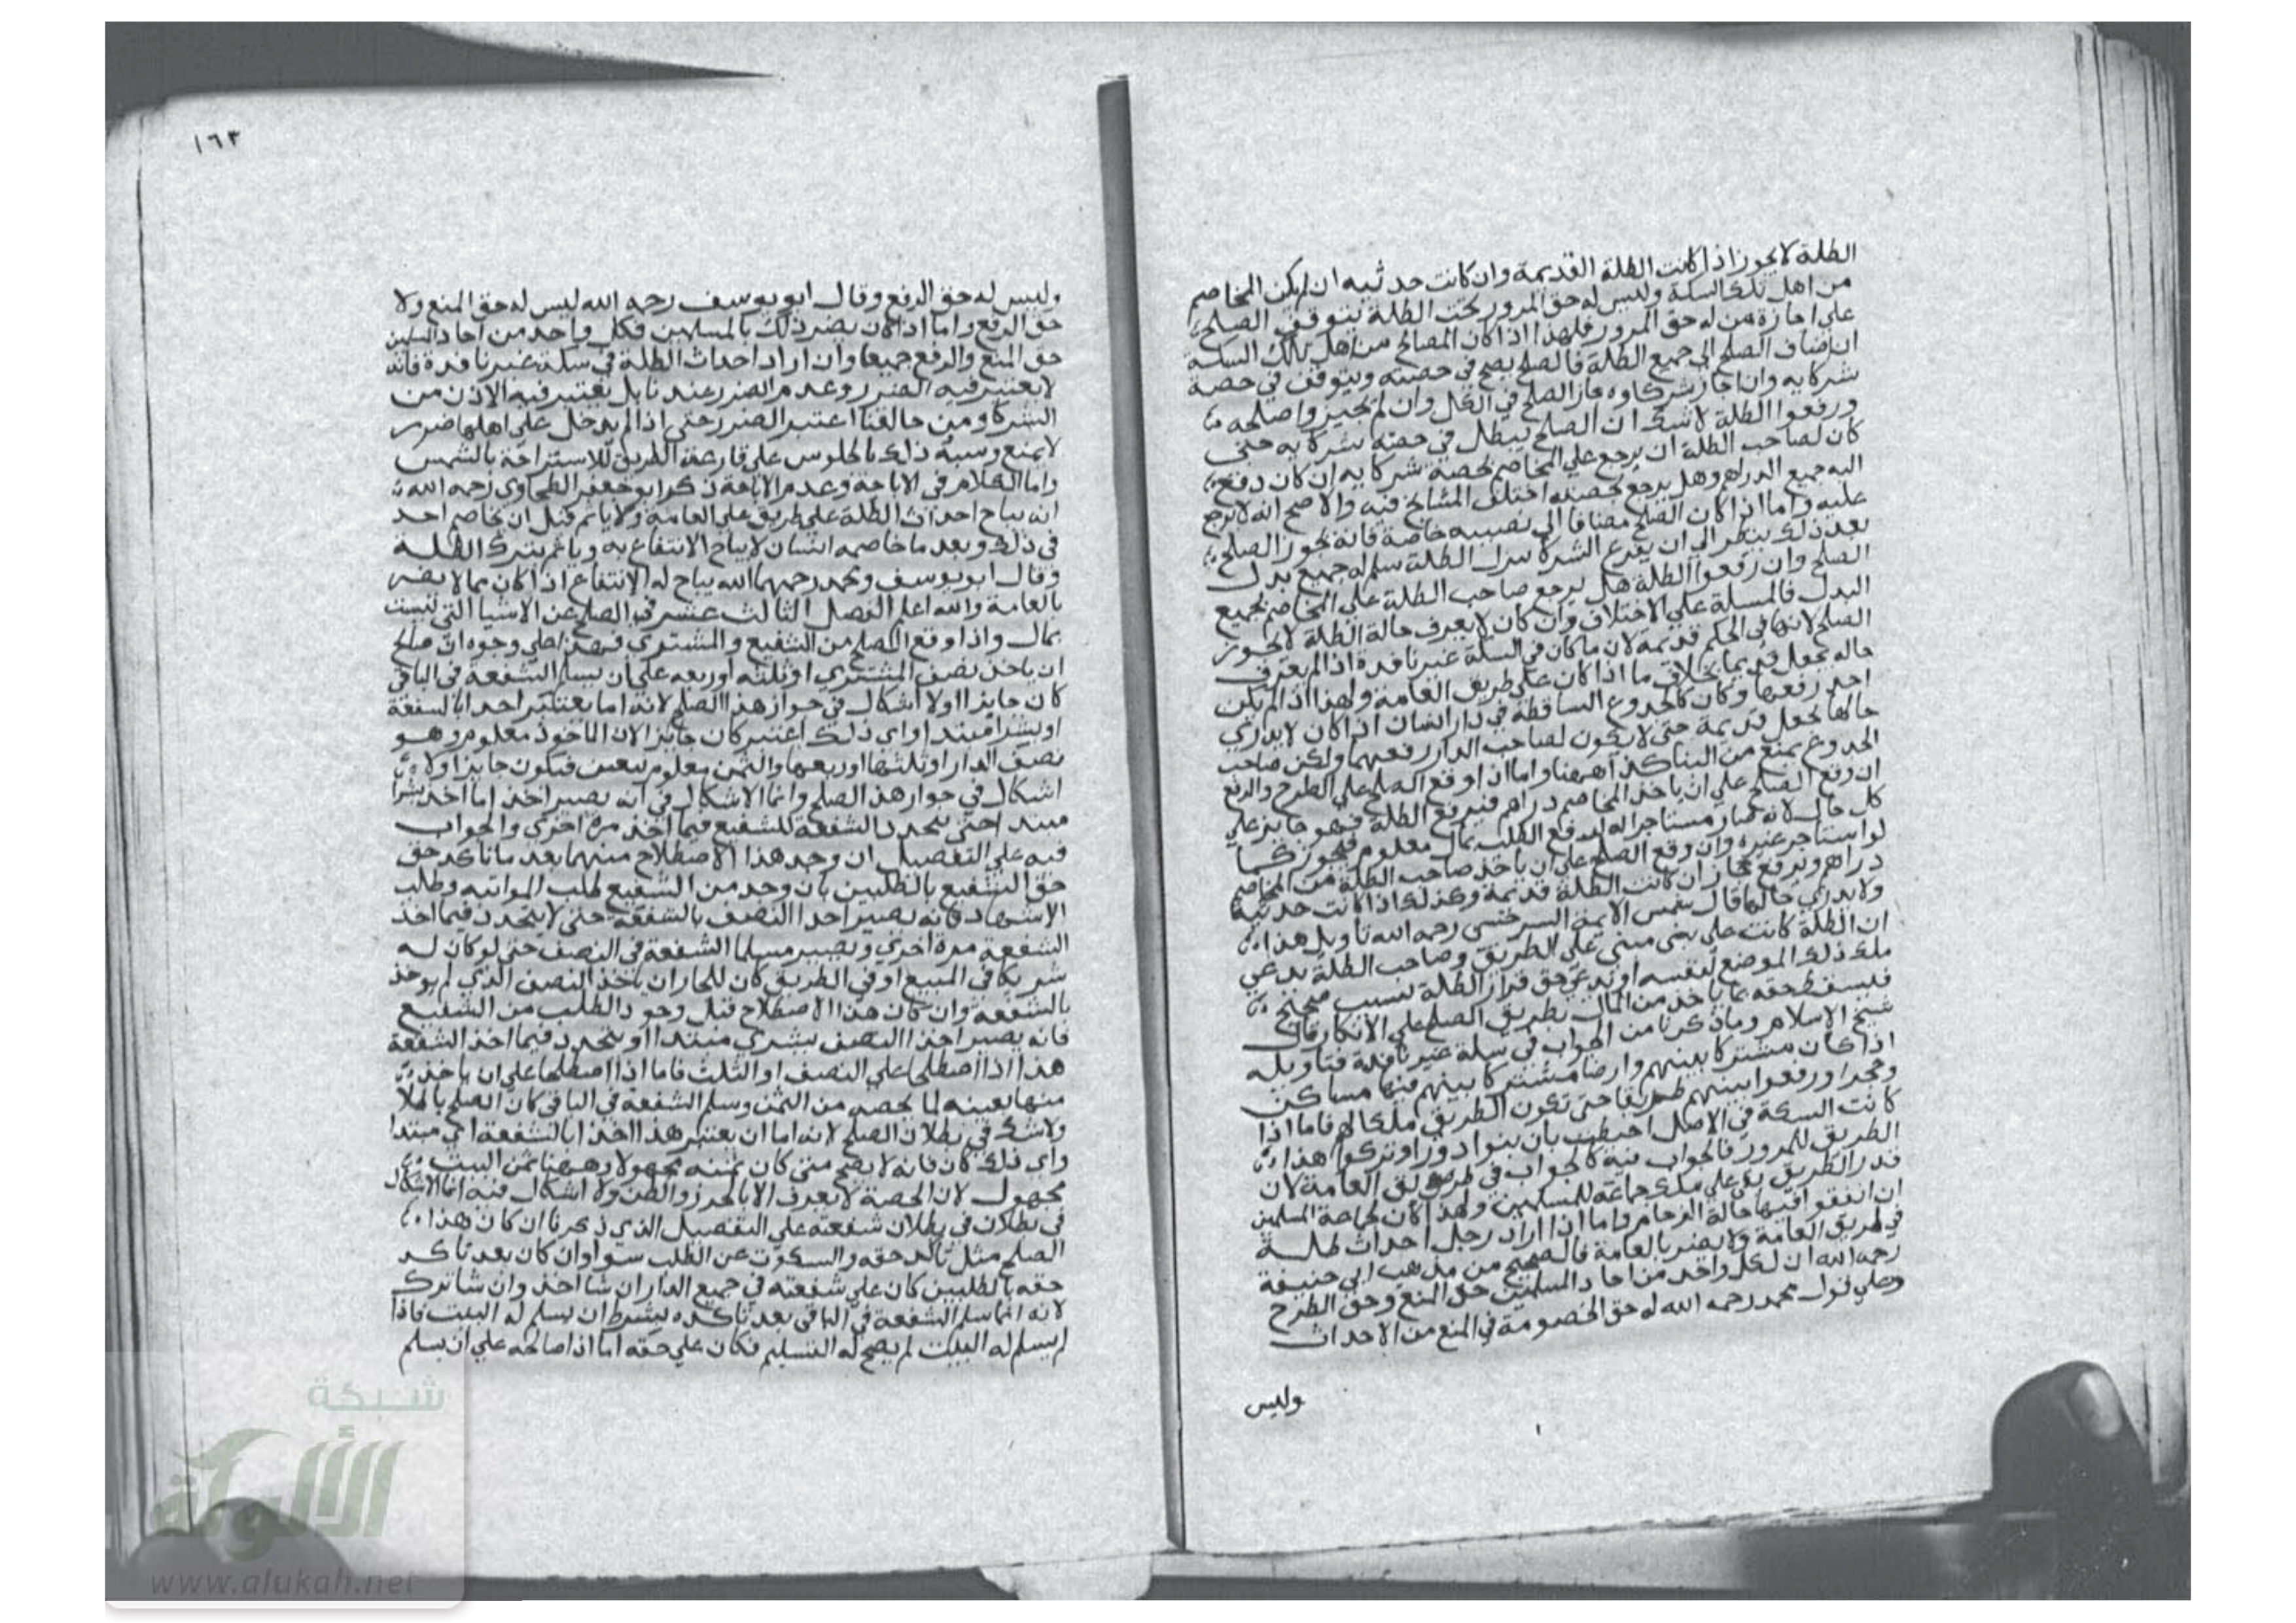 الظلة لا يجوز اذا كانت الظلة القديمة وان كانت حديثه ان لم يكن المخاصم
من اهل تلك السكة وليس له حق المرور تحت الظلة يتوقف الصلح
على اجازة من له حق المرور فلهذا اذا كان المصالح من اهل تلك السكة
ان اضاف الصلح الى جميع الظلة فالصلح يصح في حصته ويتوقف في حصة
شركايه وان اجاز شركاوه جاز الصلح في الكل وان لم يجيزوا صلحه
ورفعوا الظلة لا شك ان الصلح يبطل في حصة شركايه حتى
كان لصاحب الظلة ان يرجع علي المخاصم بحصة شركايه ان كان دفع
اليه جميع الدراهم وهل يرجع بحصته اختلف المشايخ فيه والاصح انه لا يرجع
عليه واما اذا كان الصلح مضافا الى نصيبه خاصة فانه يجوز الصلح
بعد ذلك ينظر الى ان الشركا الظلة سلم له جميع بدل
الصلح وان رفعوا الظلة هل يرجع صاحب الظلة على المخاصم بجميع
البدل فالمسلة علي الاختلاف وان كان لا يعرف حالة الظلة لا يجوز
الصلح لانها في الحكم قديمة لان ما كان في السكة غير نافدة اذا لم يعرف
حاله يجعل قديما بخلاف ما اذا كان على طريق العامة ولهذا اذا لم يكن
احد رفعها وكان كالجدوع الساقطة في دار انسان اذا كان لا يدري
حالها يجعل قديمة حتى لا يكون لصاحب الدار رفعها ولكن صاحب
الجدوع يمنع من البنا كذا ههنا واما اذا وقع الصلح علي الطرح والرفع
ان وقع الصلح علي ان ياخذ المخاصم دراهم فيرفع الظلة فهو جايز علي
كل حال لانه صار مستاجرا له لدفع الظلة بمال معلوم فيجوز كما
لو استاجر غيره وان وقع الصلح علي ان ياخذ صاحب الظلة من المخاصم
دراهم ويرفع جاز ان كانت الظلة قديمة وكذلك اذا كانت حديثة
ولا يدري حالها قال شمس الايمة السرخسي رحمه الله تاويل هذا
ان الظلة كانت علي مبنى علي الطريق وصاحب الظلة يدعي
ملك ذلك الموضع لنفسه او يدعي حق قرار الظلة بسبب صحيح
فيسقط حقه بما ياخذ من المال بطريق الصلح علي الانكار قال
شيخ الاسلام وما ذكرنا من الجواب في سكة غير نافدة فتاويله
اذا كان مشتركا بينهم وارضا مشتركا بينهم فيها مساكن
وحجرا ورفعوا بينهم طريقا حتى تكون الطريق ملكا لهم فاما اذا
كانت السكة في الاصل احيطت بان بنوا دورا وتركوا هذا
الطريق للمرور فالجواب فيه كالجواب في طريق العامة لان
قدر الطريق بقي علي ملك جماعة للمسلمين ولهذا كان لعامة المسلمين
ان اتفقوا فيها حالة الزحام واما اذا اراد رجل احداث ظلة
في طريق العامة ولا يضر بالعامة فالصحيح من مذهب ابي حنيفة
رحمه الله ان لكل واحد من احاد المسلمين حق المنع وحق الطرح
وعلي قول محمد رحمه الله له حق الخصومة في المنع من الاحداث
وليس
١٦٣
وليس له حق الرفع وقال ابو يوسف رحمه الله ليس له حق المنع ولا
حق الرفع واما اذا كان يضر ذلك بالمسلمين فكل واحد من احاد المسلمين
حق المنع والرفع جميعا وان اراد احداث الظلة في سكة غير نافدة فانه
لا يعتبر فيه الضرر وعدم الضرر عندنا بل يعتبر فيه الاذن من
الشركا ومن خالفنا اعتبر الضرر حتى اذا لم يدخل علي اهلها ضرر
لا يمنع وشبه ذلك بالجلوس علي قارعة الطريق للاستراحة بالشمس
واما الكلام في الاباحة وعدم الاباحة ذكر ابو جعفر الطحاوي رحمه الله
انه يباح احداث الظلة على طريق علي العامة ولا ياثم قبل ان يخاصم احد
في ذلك وبعد ما خاصمه انسان لا يباح الانتفاع به وياثم بترك الظلة
وقال ابو يوسف ومحمد رحمهما الله يباح له الانتفاع اذا كان بما لا يضر
بالعامة والله اعلم الفصل الثالث عشر في الصلح عن الاشيا التي ليست
بمال واذا وقع الصلح من الشفيع والمشتري فهذا علي وجوه ان صالح
ان ياخذ نصف المشتري او ثلثه او ربعه على ان يسلم الشفعة في الباقي
كان جايزا ولا اشكال في جواز هذا الصلح لانه اما يعتبر اخذا بالشفعة
او بشرا مبتدا واي ذلك اعتبر كان جايزا لان الماخوذ معلوم وهو
نصف الدار او ثلثها او ربعها والثمن معلوم بيقين فيكون جايزا ولا
اشكال في جواز هذا الصلح وانما الاشكال في انه يصير اخذا اما اخذ بشرا
مبتدا حتى يتجدد الشفعة للشفيع فيما اخذ مرة اخرى والجواب
فيه علي التفصيل ان وجد هذا الاصطلاح منهما بعد ما تاكد حق
حق الشفيع بالطلبين بان وجد من الشفيع طلب المواثبه وطلب
الاشهاد فانه يصير اخذا النصف بالشفعة حتى لا يتجدد فيما اخذ
الشفعة مرة اخرى ويصير مسلما الشفعة في النصف حتى لو كان له
شريكا في المبيع او في الطريق كان للجار ان ياخذ النصف الذي لم يوخذ
بالشفعة وان كان هذا الاصطلاح قبل وجود الطلب من الشفيع
فانه يصير اخذا النصف بشري مبتدا او يتجدد فيما اخذ الشفعة
هذا اذا اصطلحا علي النصف او الثلث فاما اذا اصطلحا علي ان ياخذ
منها بعينه لما يحصه من الثمن وسلم الشفعة في الباقي كان الصلح باطلا
ولا شك في بطلان الصلح لانه اما ان يعتبر هذا اخذا بالشفعة اي مبتدا
واي ذلك كان فانه لا يصح متى كان ثمنه مجهولا وههنا ثمن البيت
مجهول لان الحصة لا يعرف الا بالحرز والظن ولا اشكال فيه انما الاشكال
في بطلان في بطلان شفعته علي التفصيل الذي ذكرنا ان كان هذا
الصلح مثل تاكد حقه والسكوت عن الطلب سوا وان كان بعد تاكد
حقه بالطلبين كان علي شفعته في جميع الدار ان شا اخذ وان شا ترك
لانه انما سلم الشفعة في الباقي بعد تاكده بشرط ان يسلم له البيت فاذا
لم يسلم له البيت لم يصح له التسليم فكان علي حقه اما اذا صالحه علي ان يسلم
شبكة
الألوكة
www.alukah.net